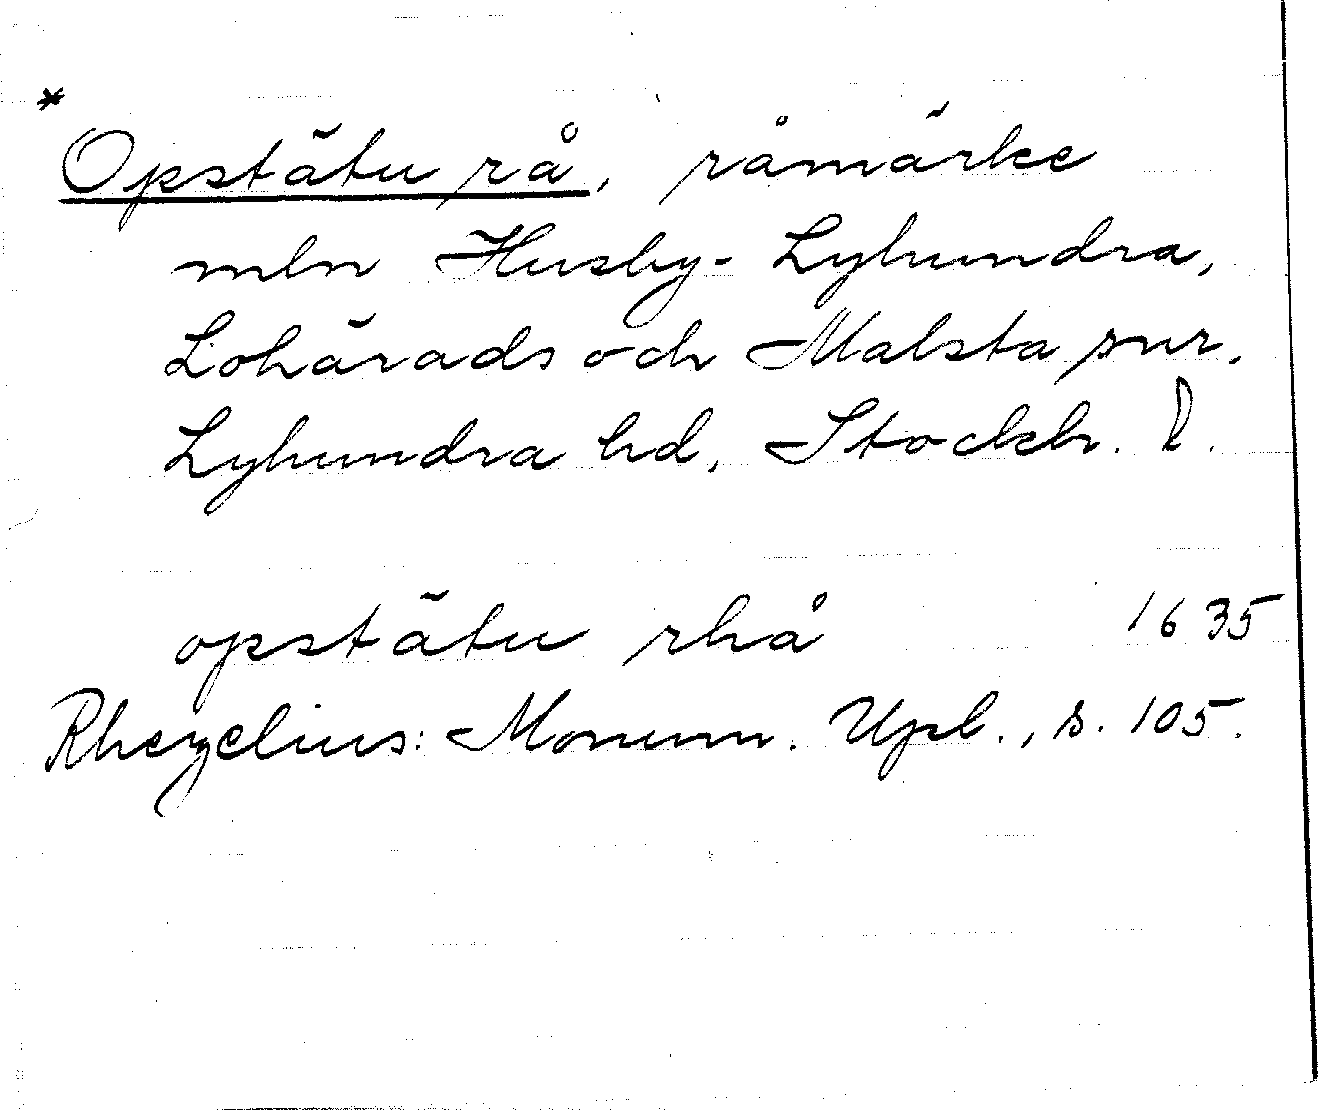 * Opstätu rå, råmärke
mln Husby-Lyhundra,
Lohärads och Malsta snr.
Lyhundra hd, Stockh. l.
opstätu rhå 1635
Rhezelius: Monum. Upl., s. 105.